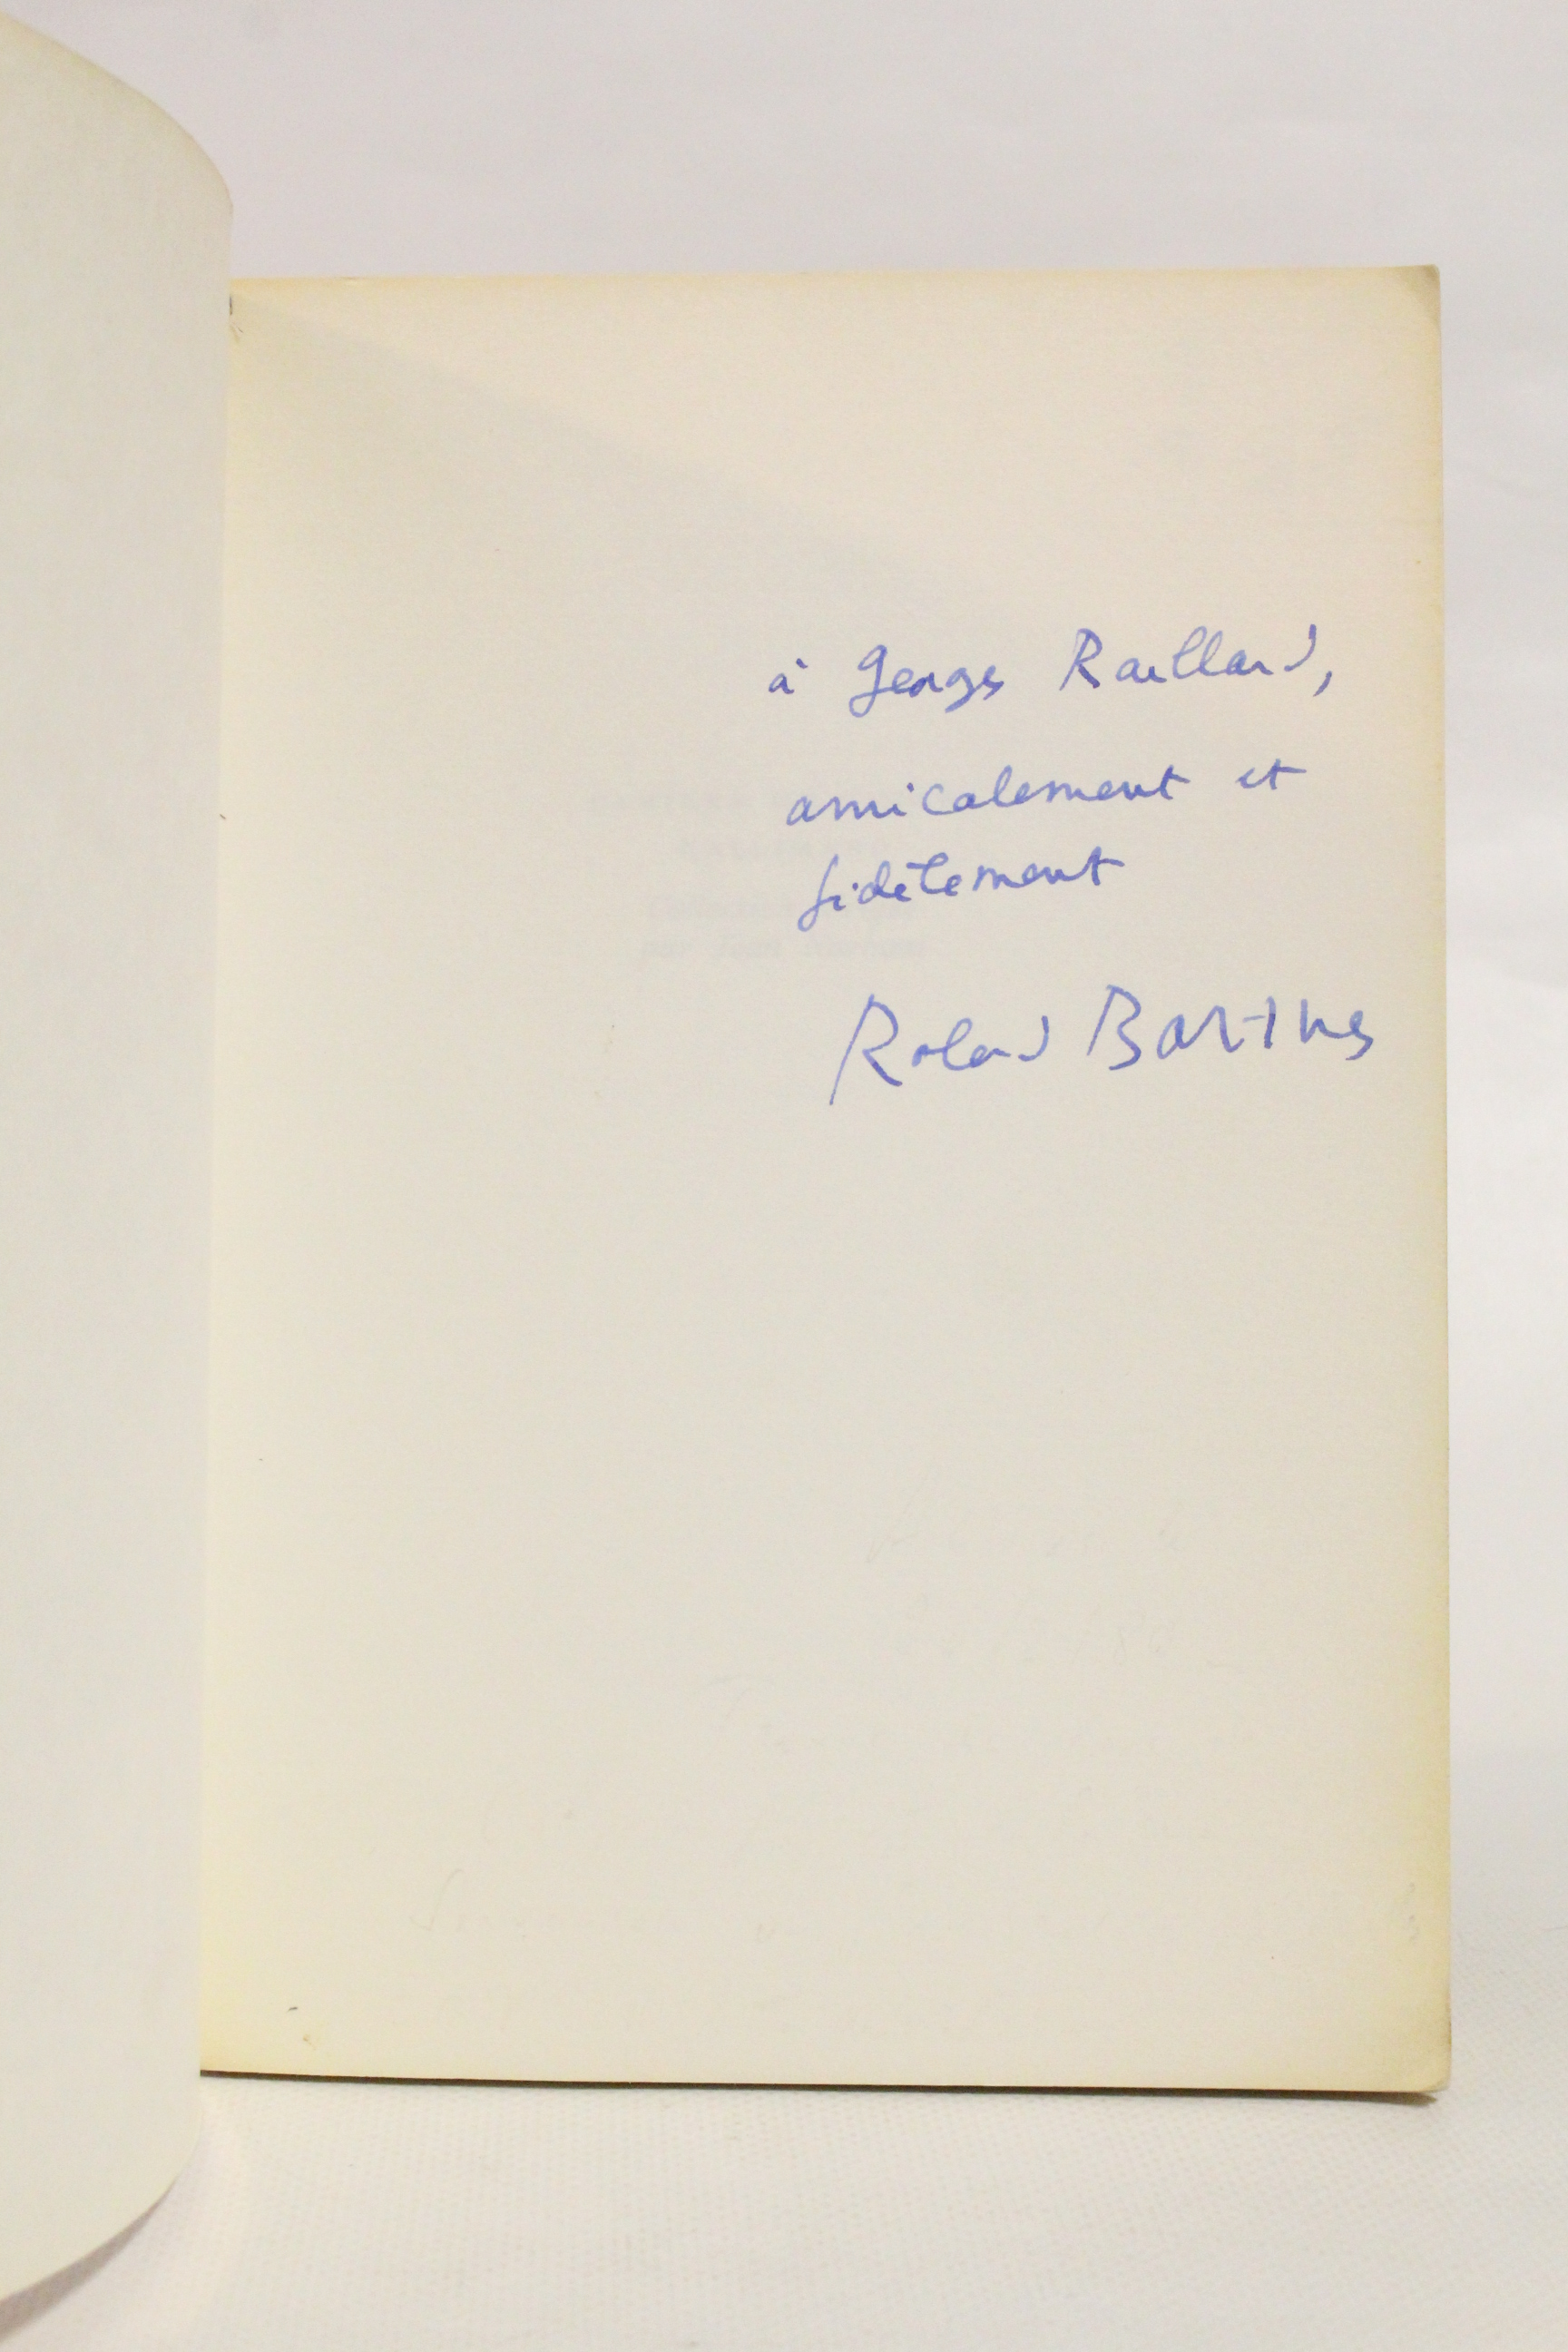 à Georges Raillard,
amicalement et
fidèlement
Roland Barthes